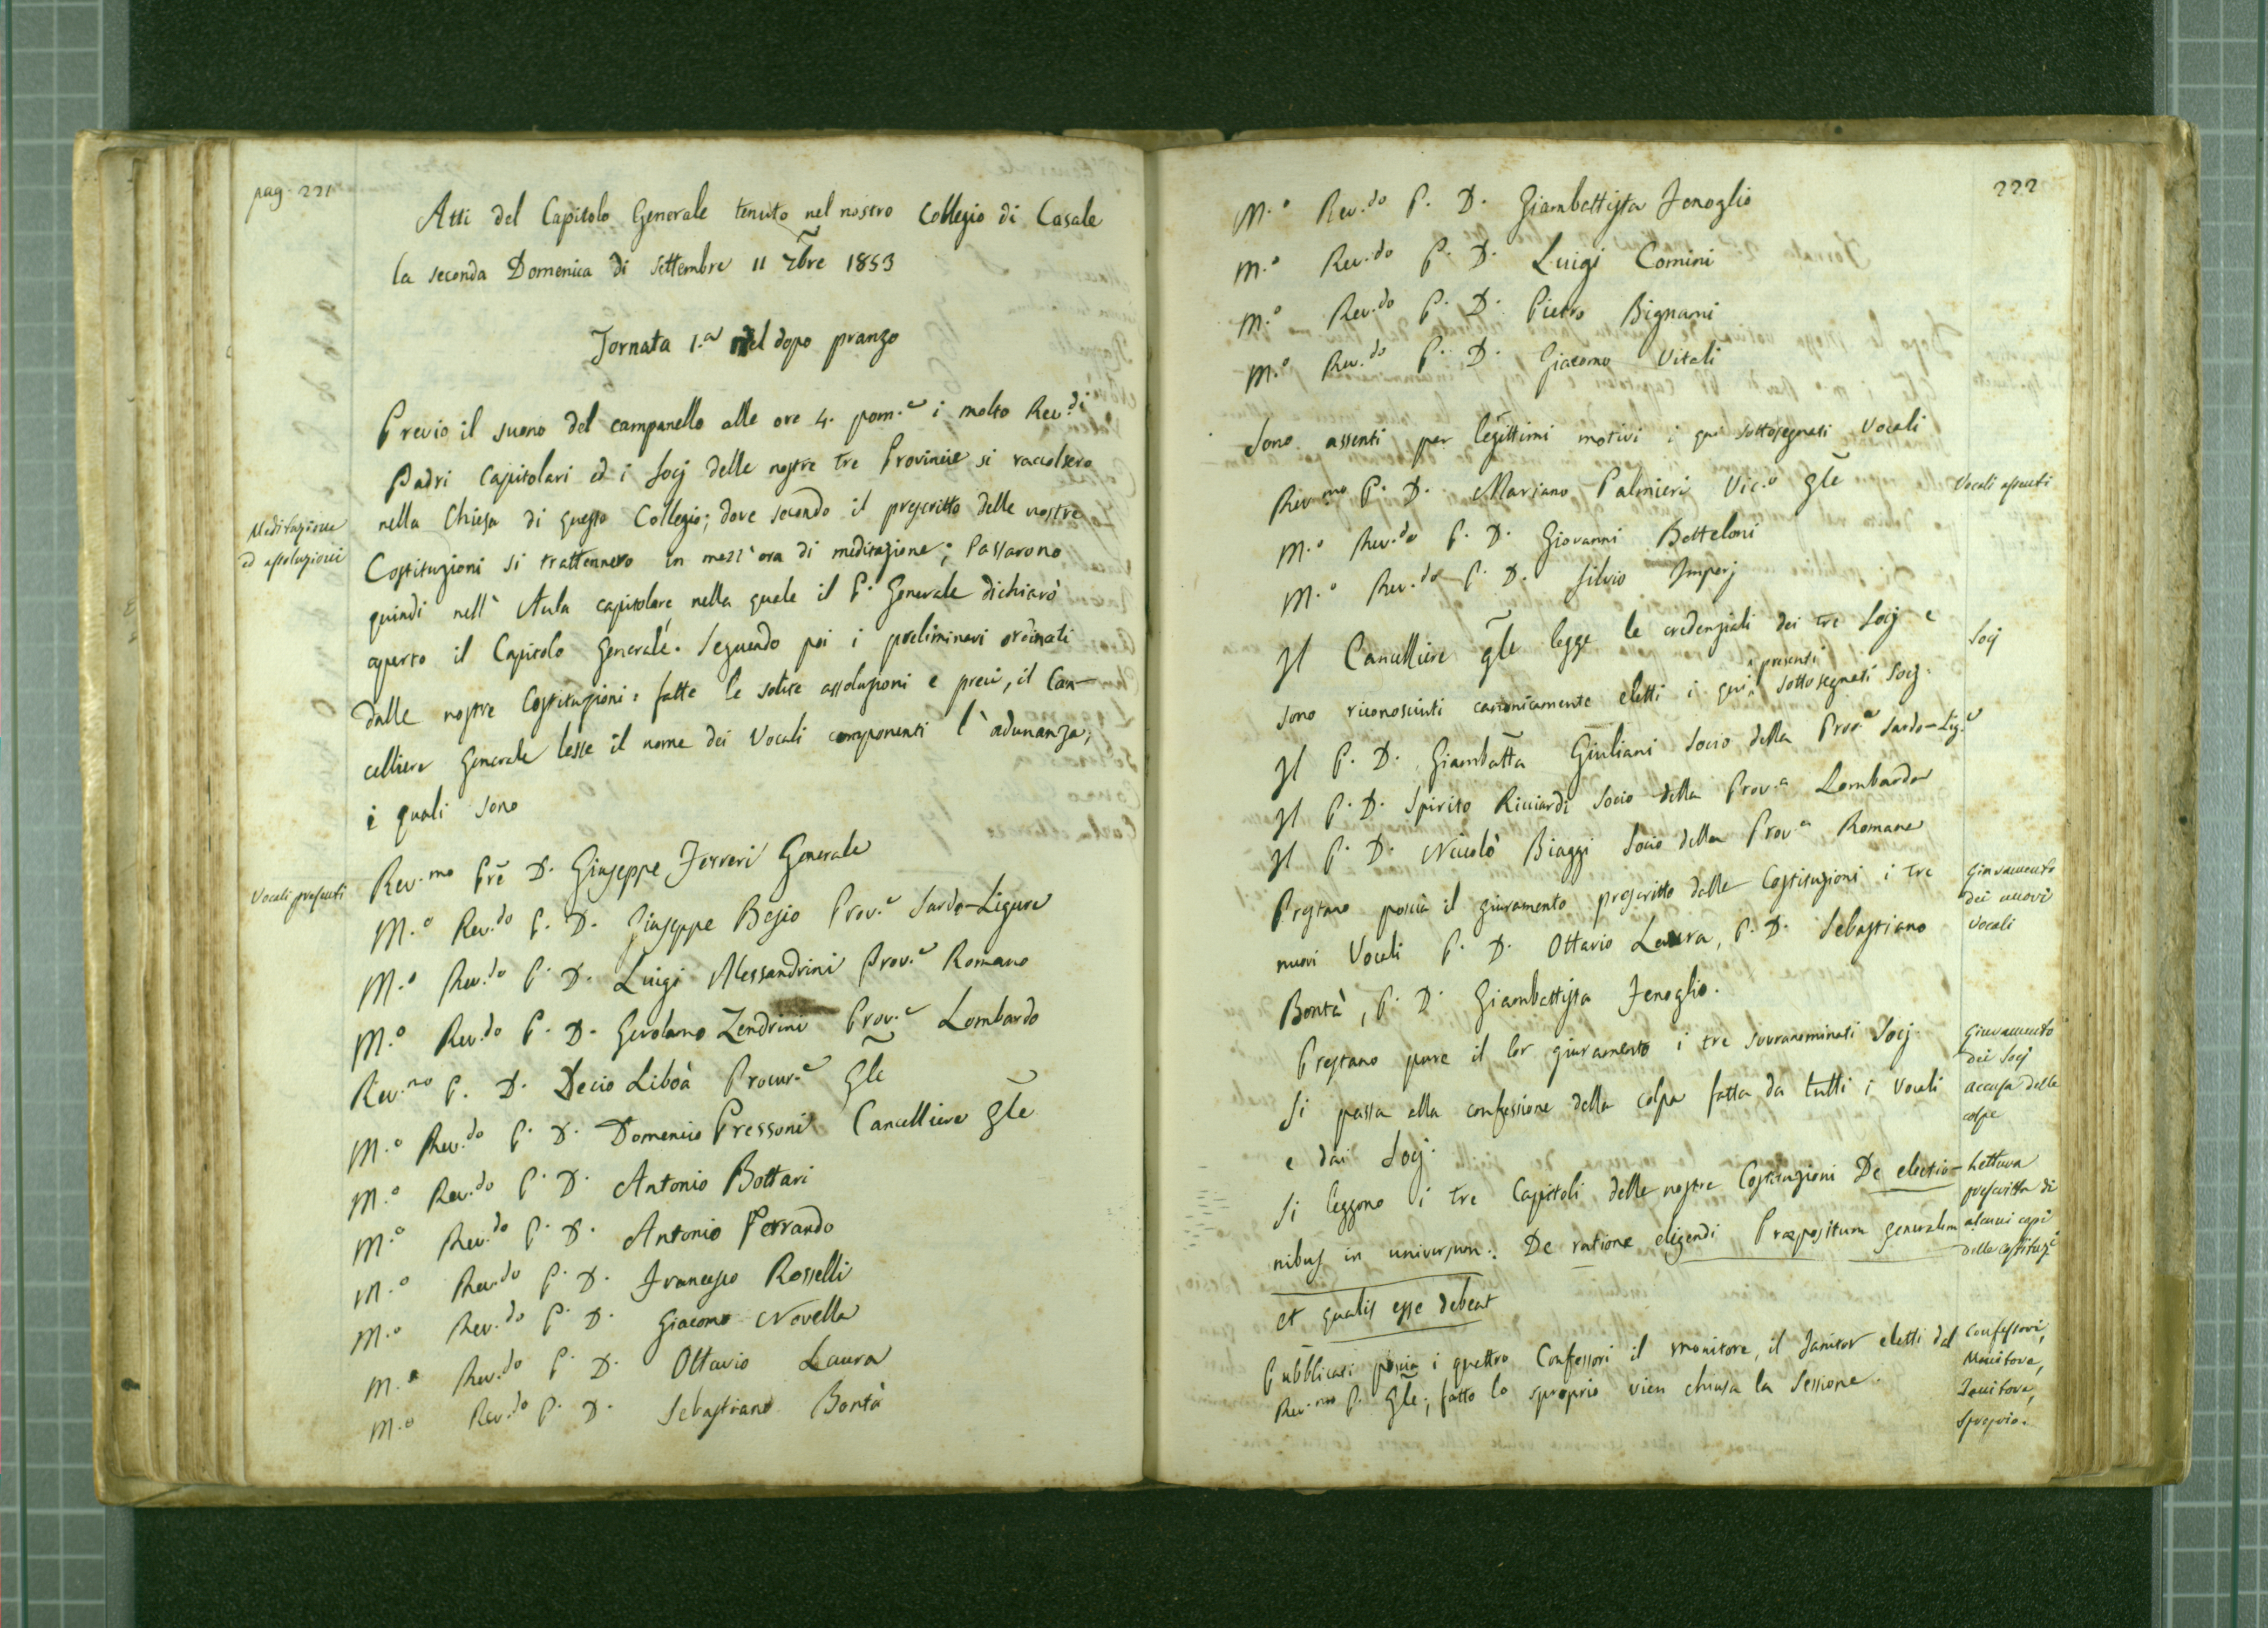 pag. 221
Atti del Capitolo Generale tenuto nel nostro Collegio di Casale
la seconda Domenica di Settembre 11 7bre 1853
Tornata 1.a nel dopo pranzo
Previo il suono del campanello alle ore 4. pom.e i molto Rev.di
Padri Capitolari ed i Socj delle nostre tre Provincie si raccolsero
nella Chiesa di questo Collegio; dove secondo il prescritto delle nostre
Meditazione
ed assoluzioni
Costituzioni si trattennero in mezz'ora di meditazione; Passarono
quindi nell'Aula capitolare nella quale il P. Generale dichiarò
aperto il Capitolo Generale. Seguendo poi i preliminari ordinati
dalle nostre Costituzioni: fatte le solite assoluzioni e preci, il Can-
celliere Generale lesse il nome dei Vocali componenti l'adunanza,
i quali sono
Vocali presenti
Rev.mo Pre D. Giuseppe Ferreri Generale
M.o Rev.do P. D. Giuseppe Besio Prov.e Sardo-Ligure
M.o Rev.do P. D. Luigi Alessandrini Prov.e Romano
M.o Rev.do P. D. Girolamo Zendrini Prov.e Lombardo
Rev.mo P. D. Decio Liboà Procur.e Gle
M.o Rev.do P. D. Domenico Pressoni Cancelliere Gle
M.o Rev.do P. D. Antonio Bottari
M.o Rev.do P. D. Antonio Ferrando
M.o Rev.do P. D. Francesco Rosselli
M.o Rev.do P. D. Giacomo Novella
M.o Rev.do P. D. Ottavio Laura
M.o Rev.do P. D. Sebastiano Bontà
222
M.o Rev.do P. D. Giambattista Fenoglio
M.o Rev.do P. D. Luigi Comini
M.o Rev.do P. D. Pietro Bignami
M.o Rev.do P. D. Giacomo Vitali
Sono assenti per legittimi motivi i qui sottosegnati Vocali
Vocali assenti
Rev.mo P. D. Mariano Palmieri Vic.o Gle
M.o Rev.do P. D. Giovanni Botteloni
M.o Rev.do P. D. Silvio Imperj
Il Cancelliere Gle legge le credenziali dei tre Socj e
Socj
sono riconosciuti canonicamente eletti i qui presenti sottosegnati Socj.
Il P. D. Giambatta Giuliani Socio della Prov.a Sardo-Lig.e
Il P. D. Spirito Ricciardi Socio della Prov.a Lombarda
Il P. D. Niccolò Biaggi Socio della Prov.a Romana
Prestano poscia il giuramento prescritto dalle Costituzioni i tre
nuovi Vocali P. D. Ottavio Laura, P. D. Sebastiano
Bontà, P. D. Giambattista Fenoglio.
Giuramento
dei nuovi
Vocali
Prestano pure il lor giuramento i tre sovranominati Socj.
Giuramento
dei Socj
Si passa alla confessione della colpa fatta da tutti i Vocali
e dai Socj.
accusa delle
colpe
Si leggono i tre Capitoli delle nostre Costituzioni De electio-
nibus in universum: De ratione eligendi Præpositum generalem
et qualis esse debeat
Lettura
prescritta di
alcuni capi
delle costituz.i
Pubblicati poscia i quattro Confessori il monitore, il Janitor eletti dal
Rev.mo P. Gle; fatto lo sproprio vien chiusa la Sessione.
Confessori,
Monitore,
Janitore,
Sproprio.